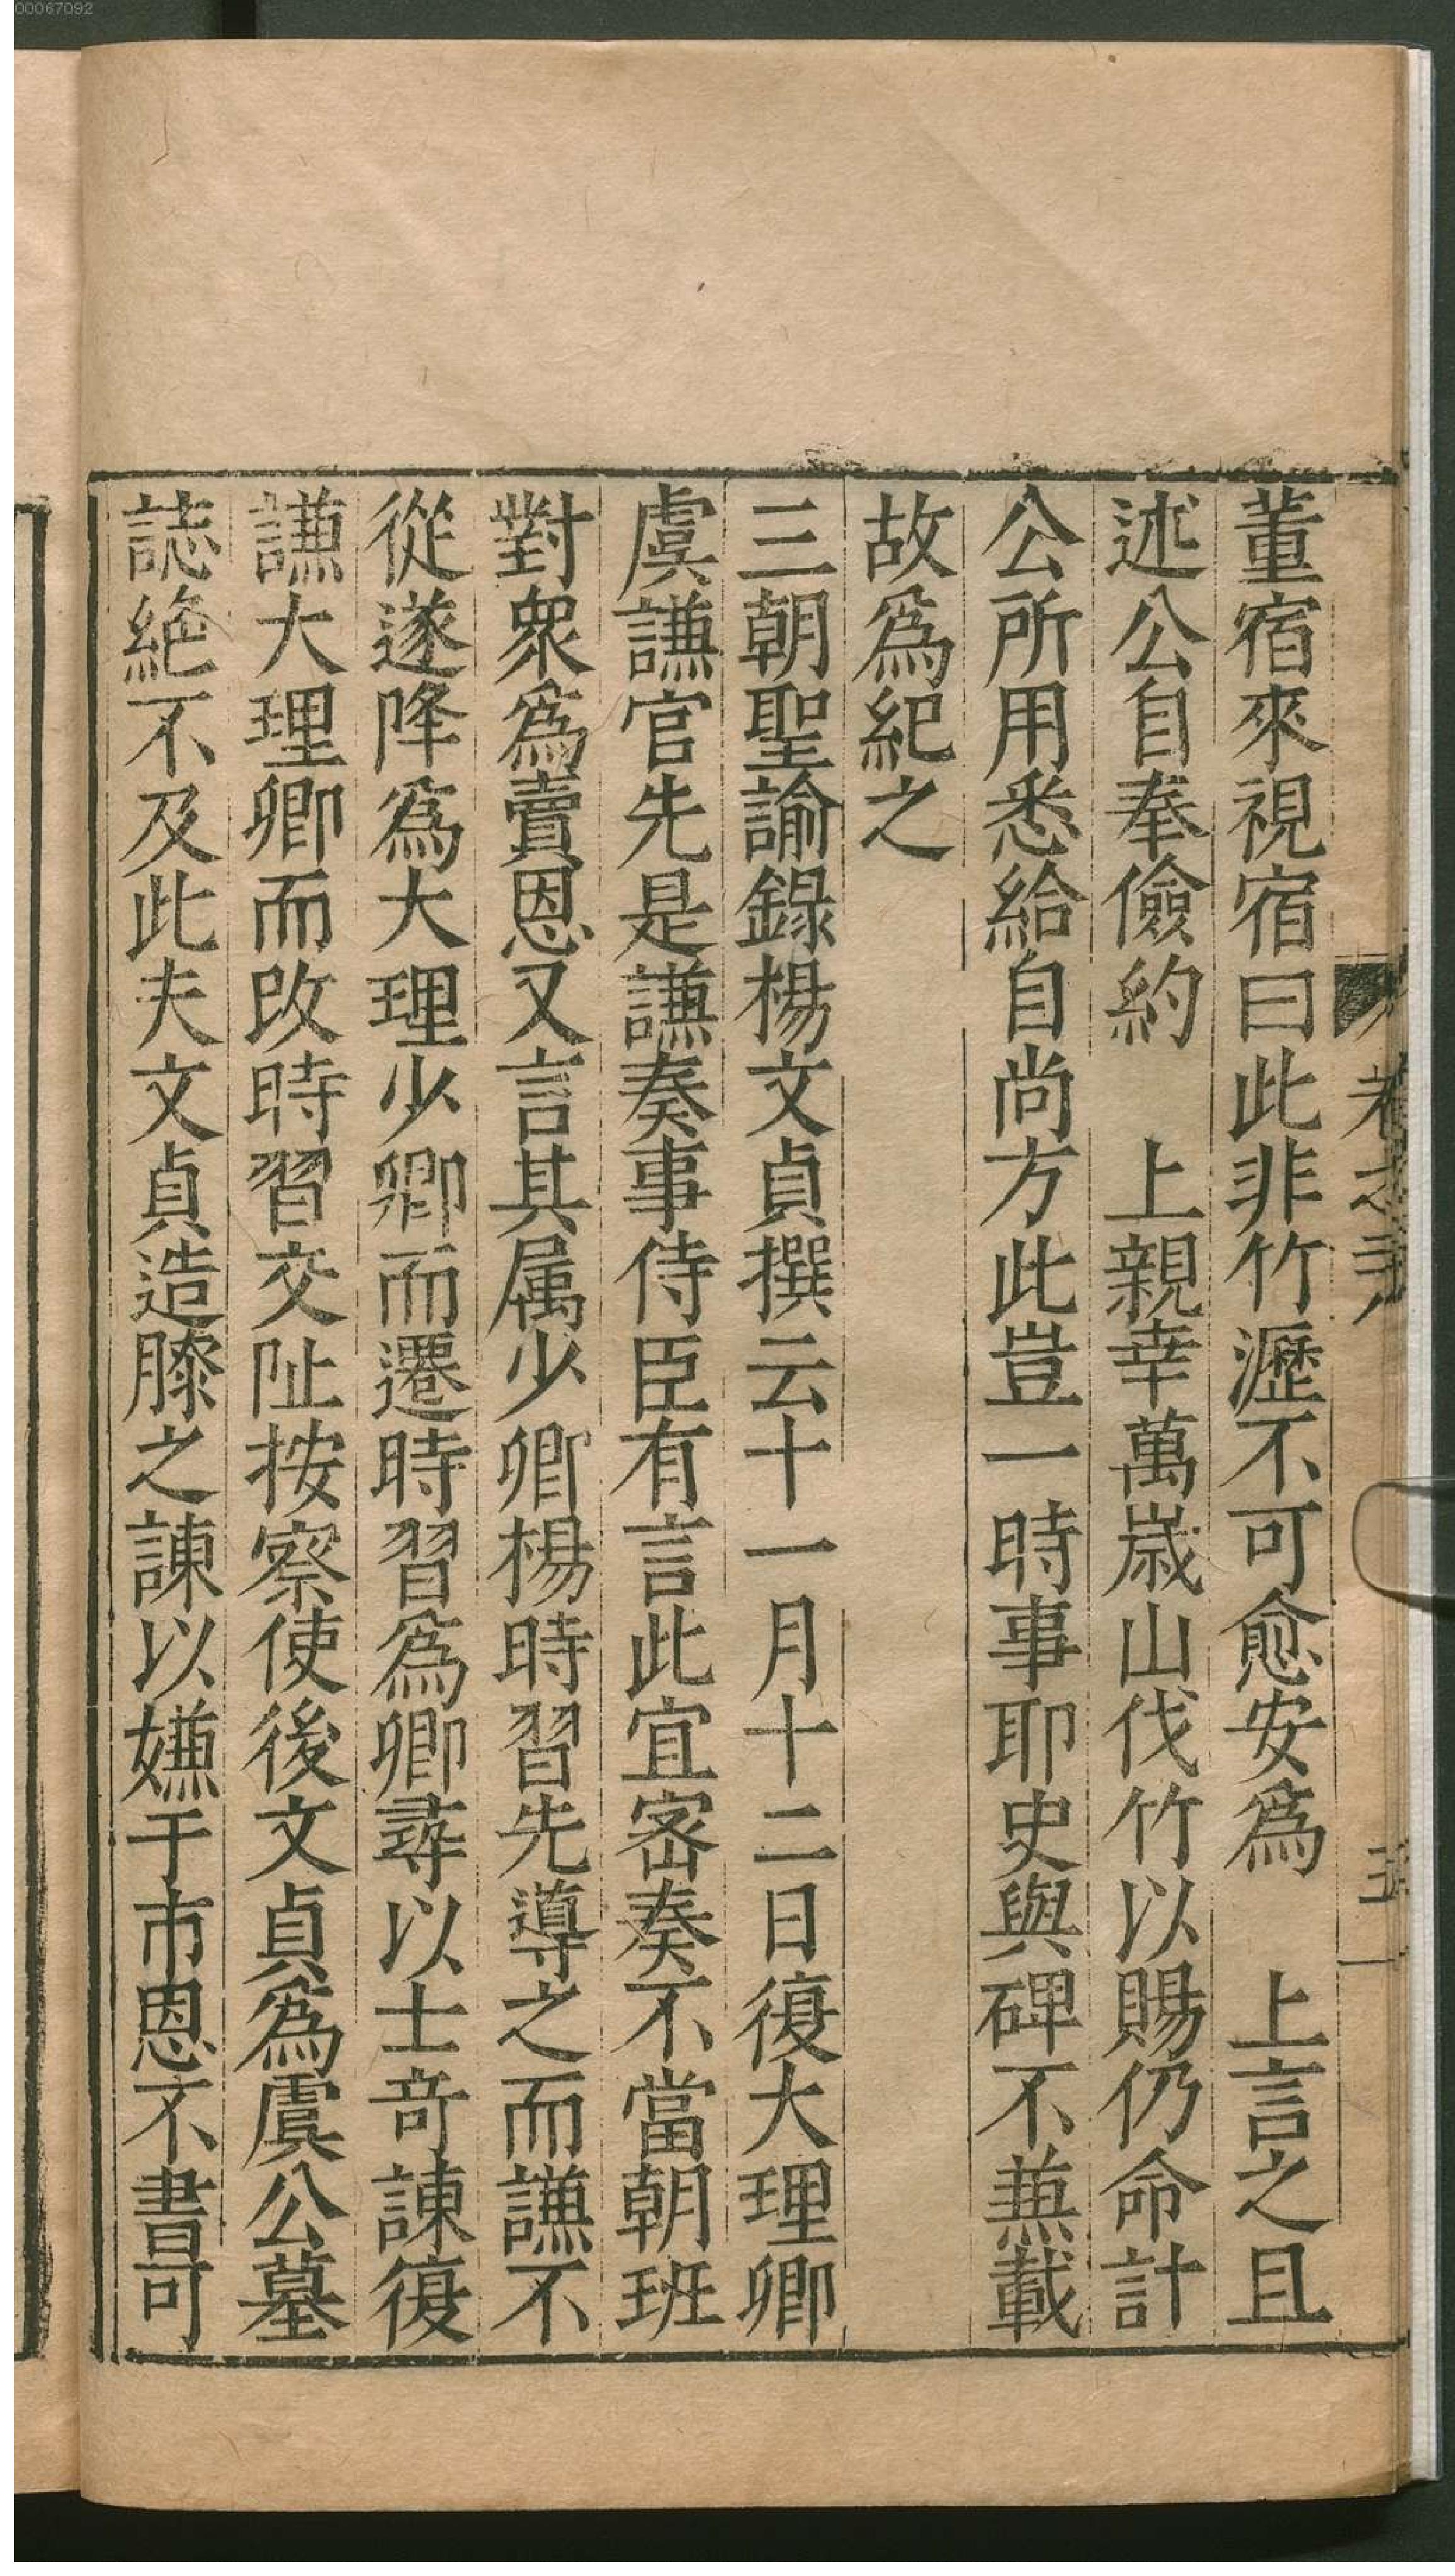 00067092
董宿來視宿曰此非竹瀝不可愈安為　上言之且
述公自奉儉約　上親幸萬歳山伐竹以賜仍命計
公所用悉給自尚方此豈一時事耶史與碑不兼載
故為紀之
三朝聖諭錄楊文貞撰云十一月十二日復大理卿
虞謙官先是謙奏事侍臣有言此宜宻奏不當朝班
對衆為賣恩又言其属少卿楊時習先導之而謙不
從遂降為大理少卿而遷時習為卿尋以士奇諫復
謙大理卿而改時習交阯按察使後文貞為虞公墓
誌絶不及此夫文貞造膝之諫以嫌于市恩不書可
五